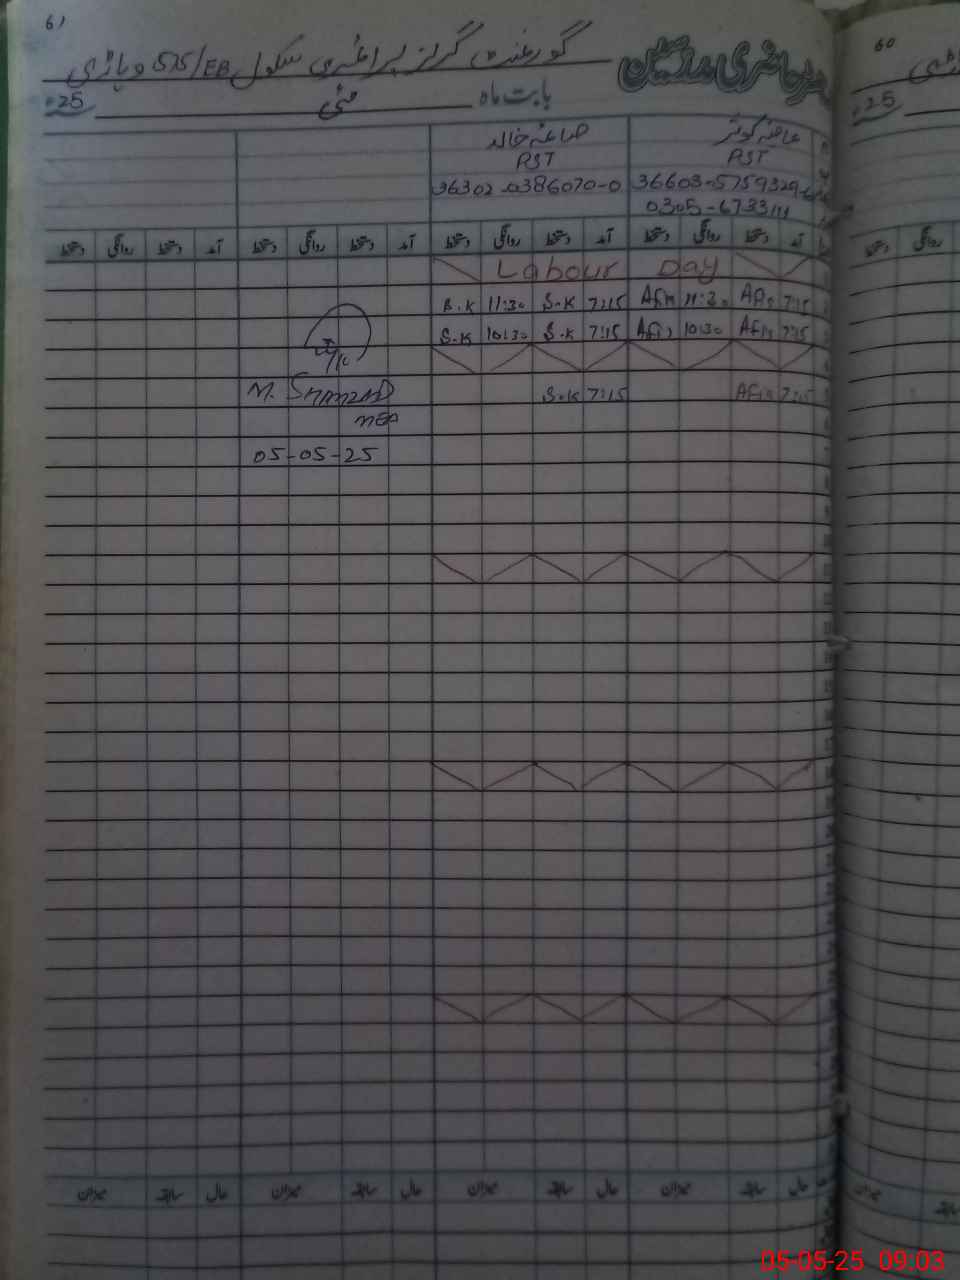 61
گورنمنٹ گرلز پرائمری سکول 515/EB وہاڑی
حاضری مدرسین
25 مئی بابت ماہ
PST PST
36302-0386070-0 36603-5759329-6
0305-6733111
دستخط روانگی دستخط آمد دستخط روانگی دستخط آمد دستخط روانگی دستخط آمد دستخط روانگی دستخط آمد
Labour Day
S.K 11:30 S.K 7:15 Afia 11:30 Afia 7:15
S.K 10:30 S.K 7:15 Afia 10:30 Afia 7:15
M. Shahzad S.K 7:15 Afia 7:15
MEA
05-05-25
میزان سابقہ حال میزان سابقہ حال میزان سابقہ حال میزان سابقہ حال
60
25
روانگی دستخط
میزان سابقہ
05-05-25 09:03